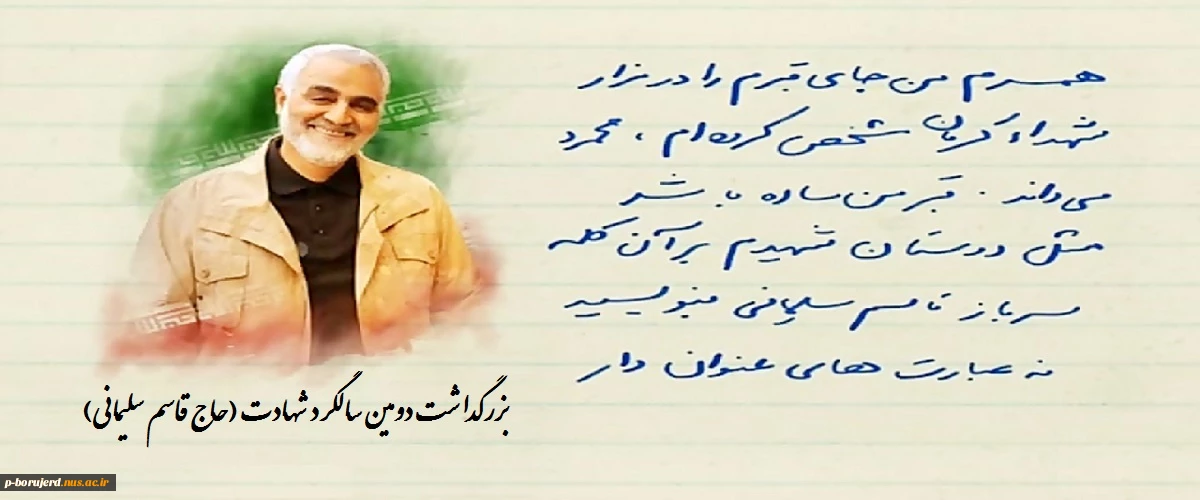 همسرم من جای قبرم را در مزار
شهداء کرمان مشخص کرده‌ام ، محمود
می‌داند . قبر من ساده باشد
مثل دوستان شهیدم بر آن کلمه
سرباز قاسم سلیمانی بنویسید
نه عبارت های عنوان دار
بزرگداشت دومین سالگرد شهادت (حاج قاسم سلیمانی)
p-borujerd.nus.ac.ir